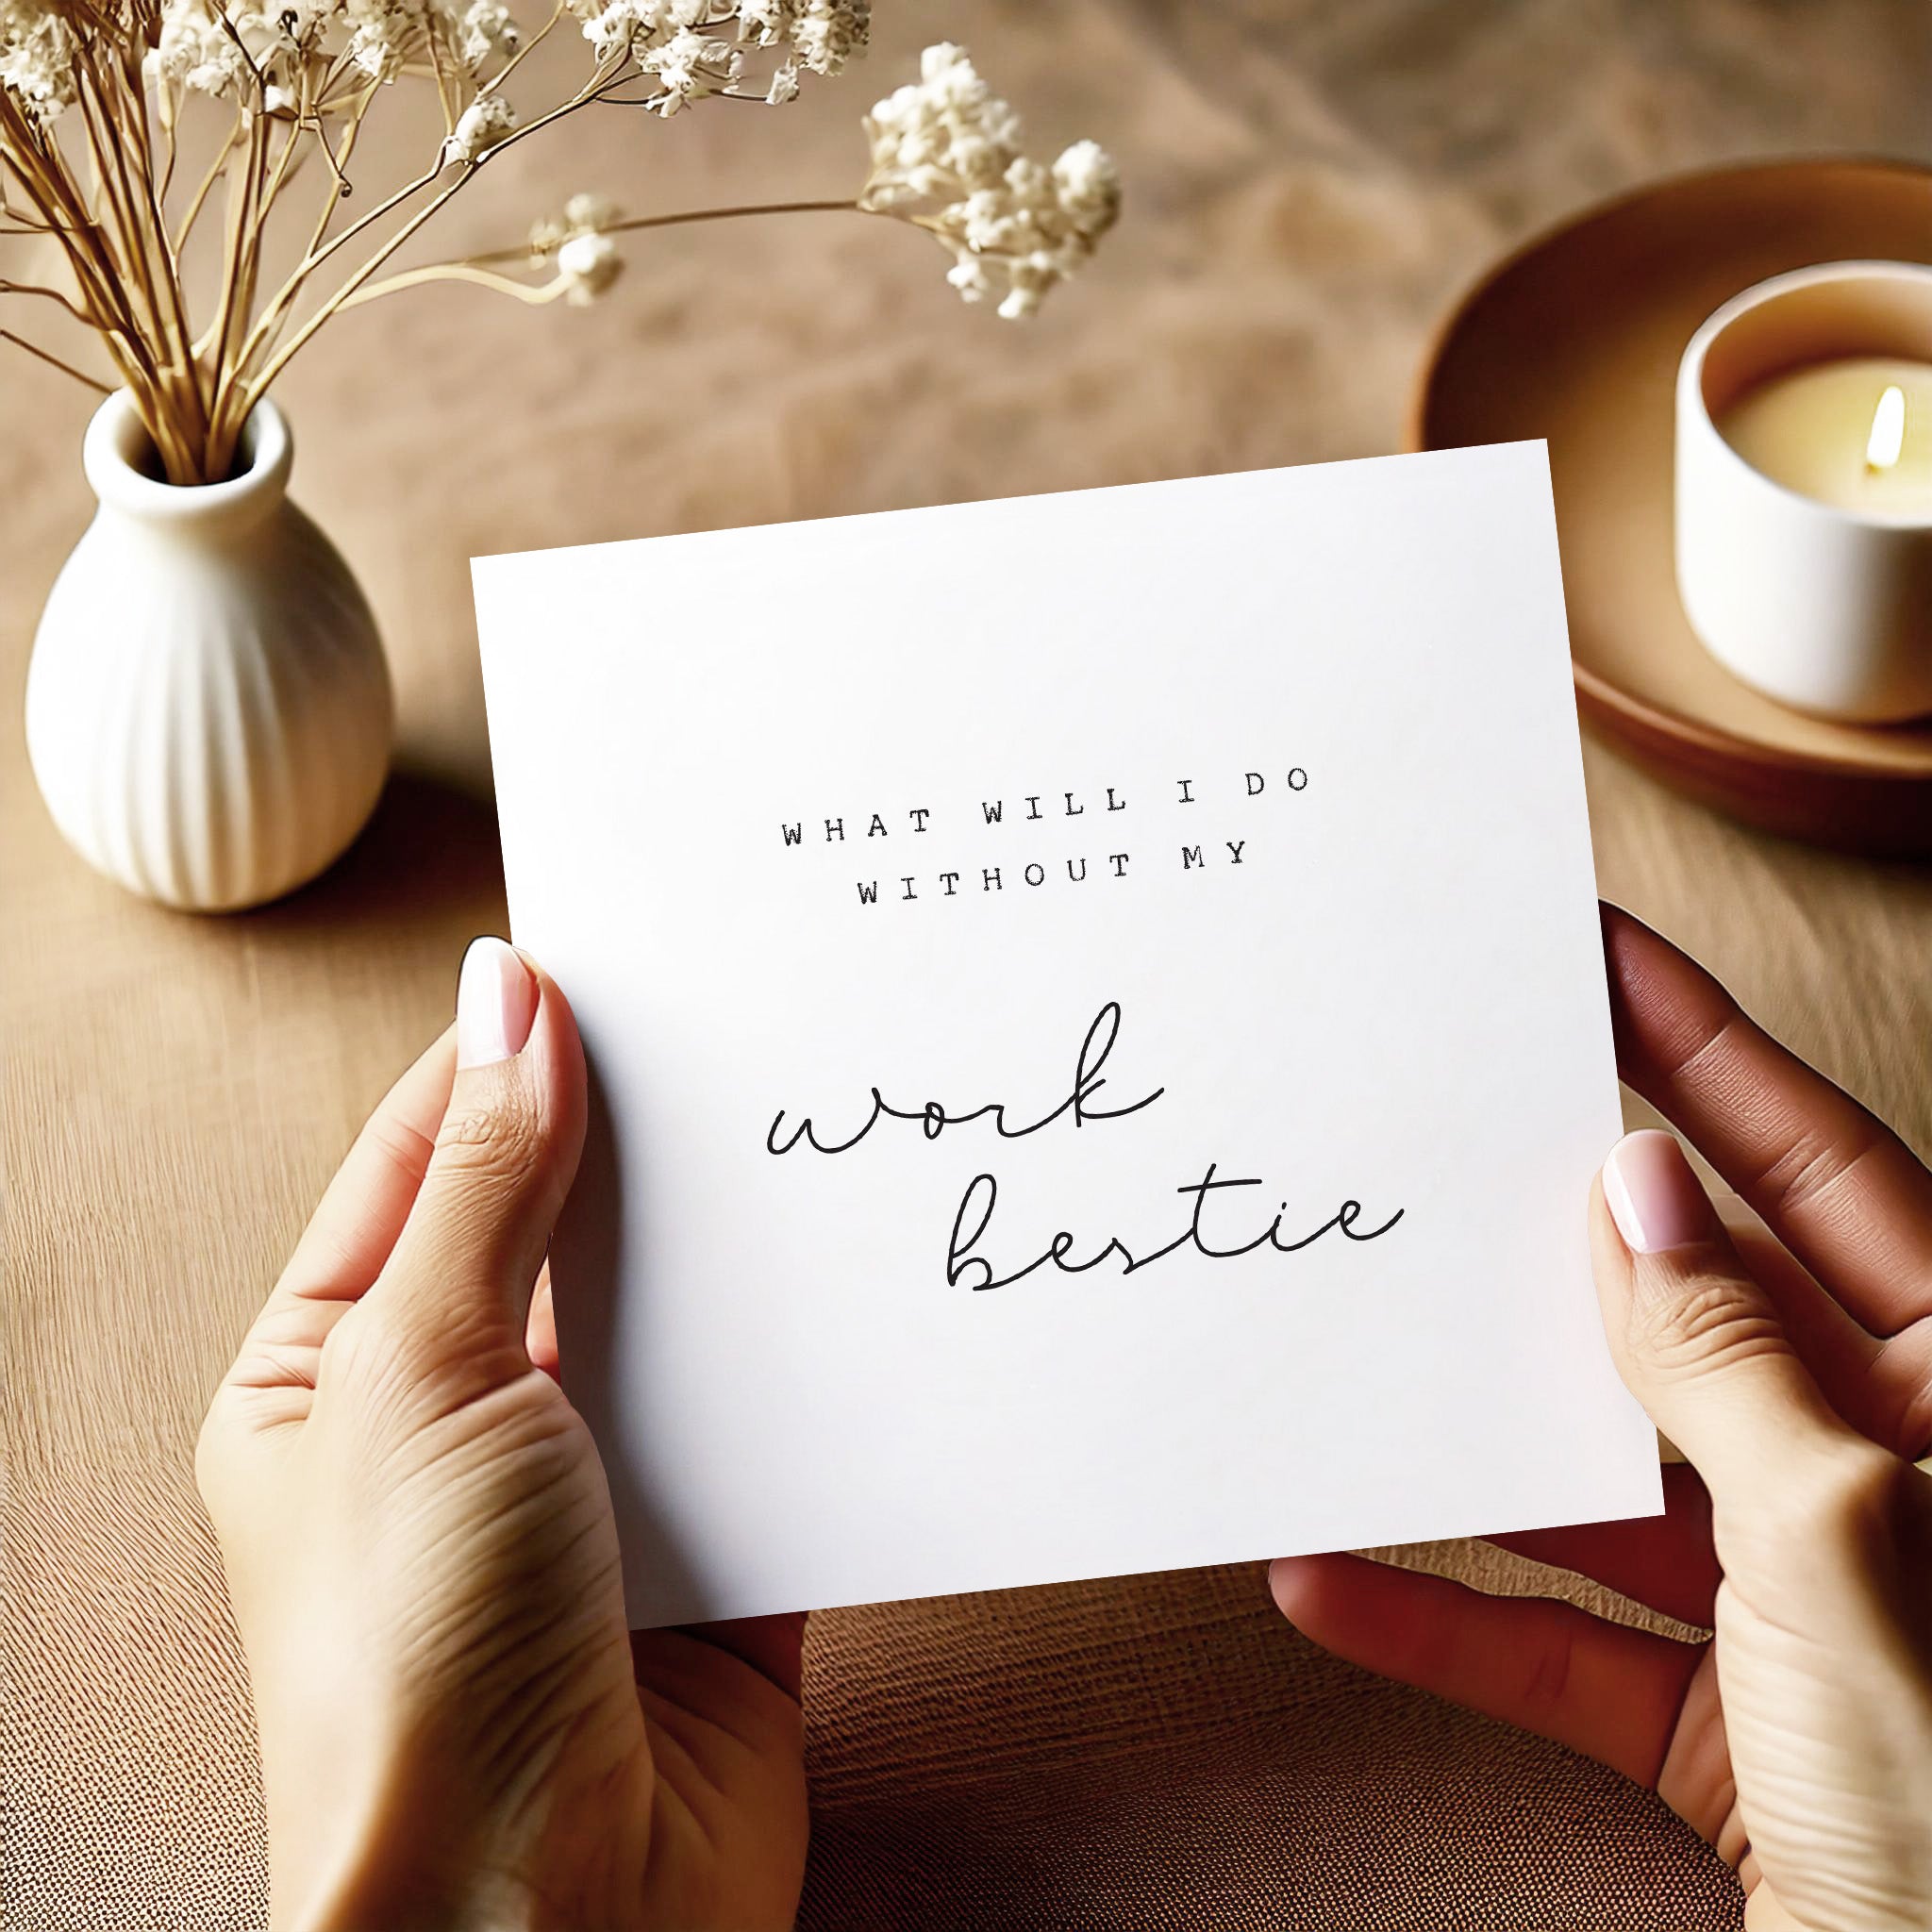 WHAT WILL I DO
WITHOUT MY
work
bestie